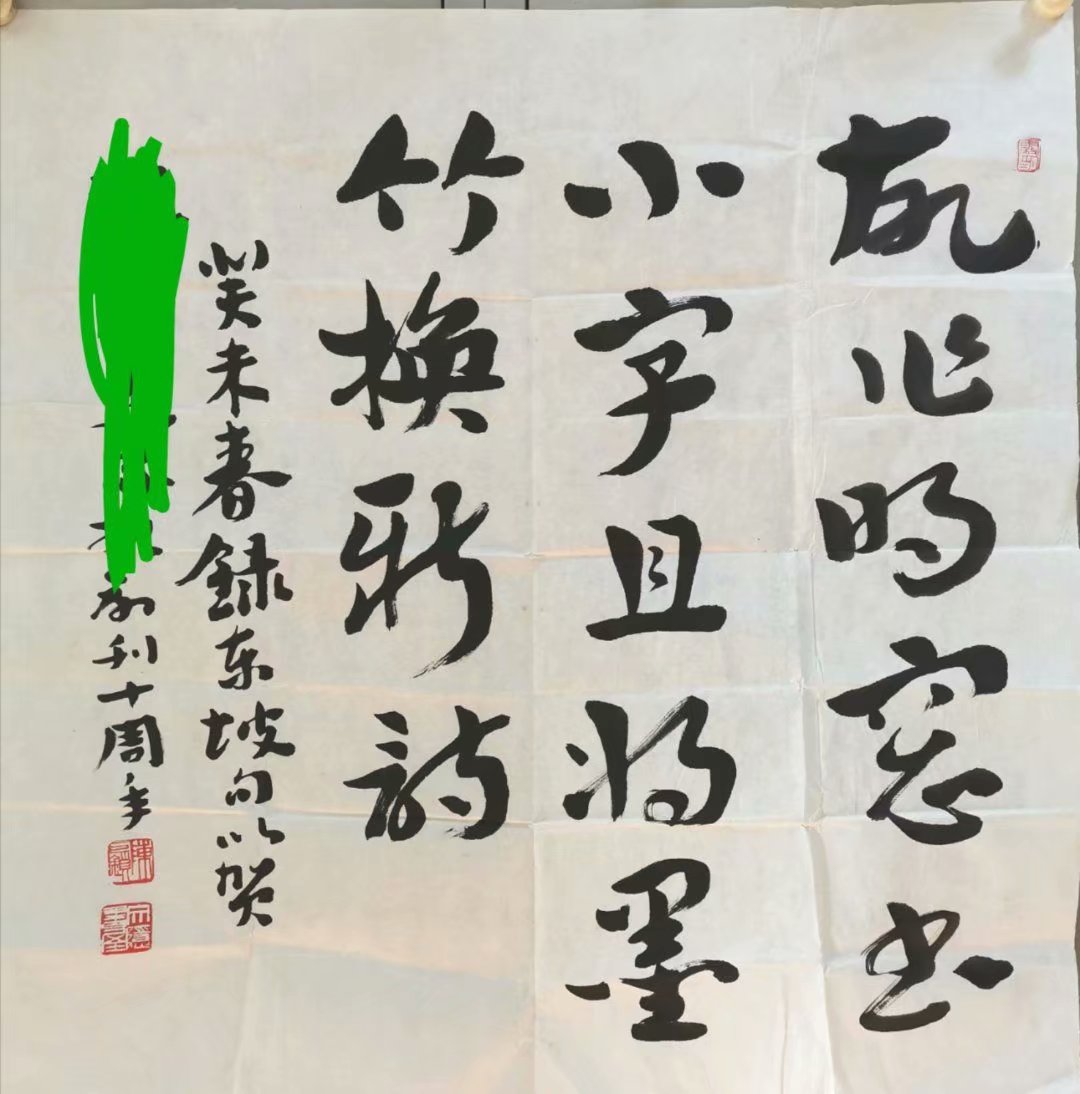 故作明窗书
小字且将墨
竹换新诗
癸未春録东坡句以贺
创刊十周年